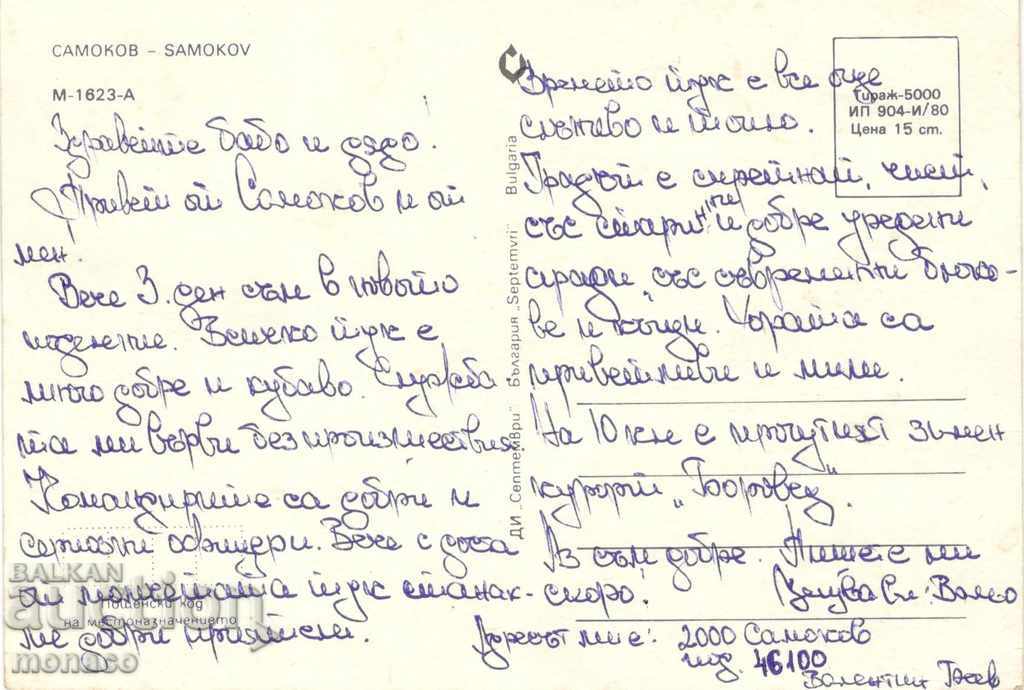 САМОКОВ – SAMOKOV
М-1623-А
Здравейте бабо и дядо.
Привет от Самоков и от
мен.
Вече 3. ден съм в новото
поделение. Всичко тук е
много добре и хубаво. Служба
та ми върви без произшествия.
Командирите са добри и
сериозни офицери. Вече с доста
от момчетата тук станах-
ме добри приятели.
Пощенски код
на местоназначението
ДИ „Септември" България „Septemvri" Bulgaria
Тираж-5000
ИП 904-И/80
Цена 15 ст.
Времето тук е все още
слънчево и топло.
Градът е спретнат, чист,
със стари и добре уредени
сгради, със съвременни блоко-
ве и къщи. Хората са
приветливи и мили.
На 10 км е прочутият зимен
курорт „Боровец".
Аз съм добре. Пишете ми
скоро. Целува ви: Вальо
Адресът ми е: 2000 Самоков
под. 46100
Валентин
BALKAN
auction
monaco